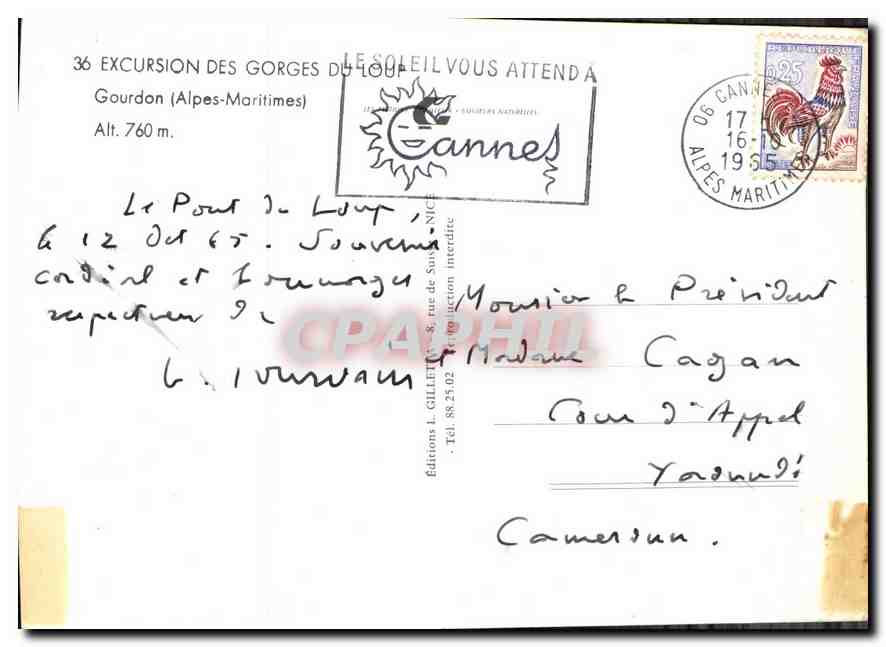 36 EXCURSION DES GORGES DU LOUP
Gourdon (Alpes-Maritimes)
Alt. 760 m.
LE SOLEIL VOUS ATTEND A
Cannes
06 CANNES
17 H
16-10
1965
ALPES MARITIMES
REPUBLIQUE FRANCAISE
0,25
Le Pont du Loup,
le 12 Oct 65. Souvenir
cordial et hommages
respectueux de
Editions L. GILLETTA 8, rue de Suisse NICE
- Tél. 88.25.02 Reproduction interdite
CPAPHIL
Monsieur le Président
et Madame Cagan
Cour d'Appel
Yaoundé
Cameroun.